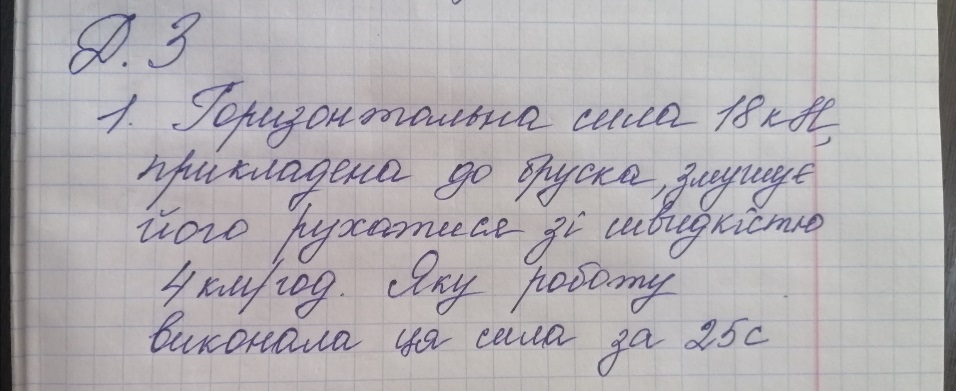 Д. З
1. Горизонтальна сила 18 кН,
прикладена до бруска, змушує
його рухатися зі швидкістю
4 км/год. Яку роботу
виконала ця сила за 25с